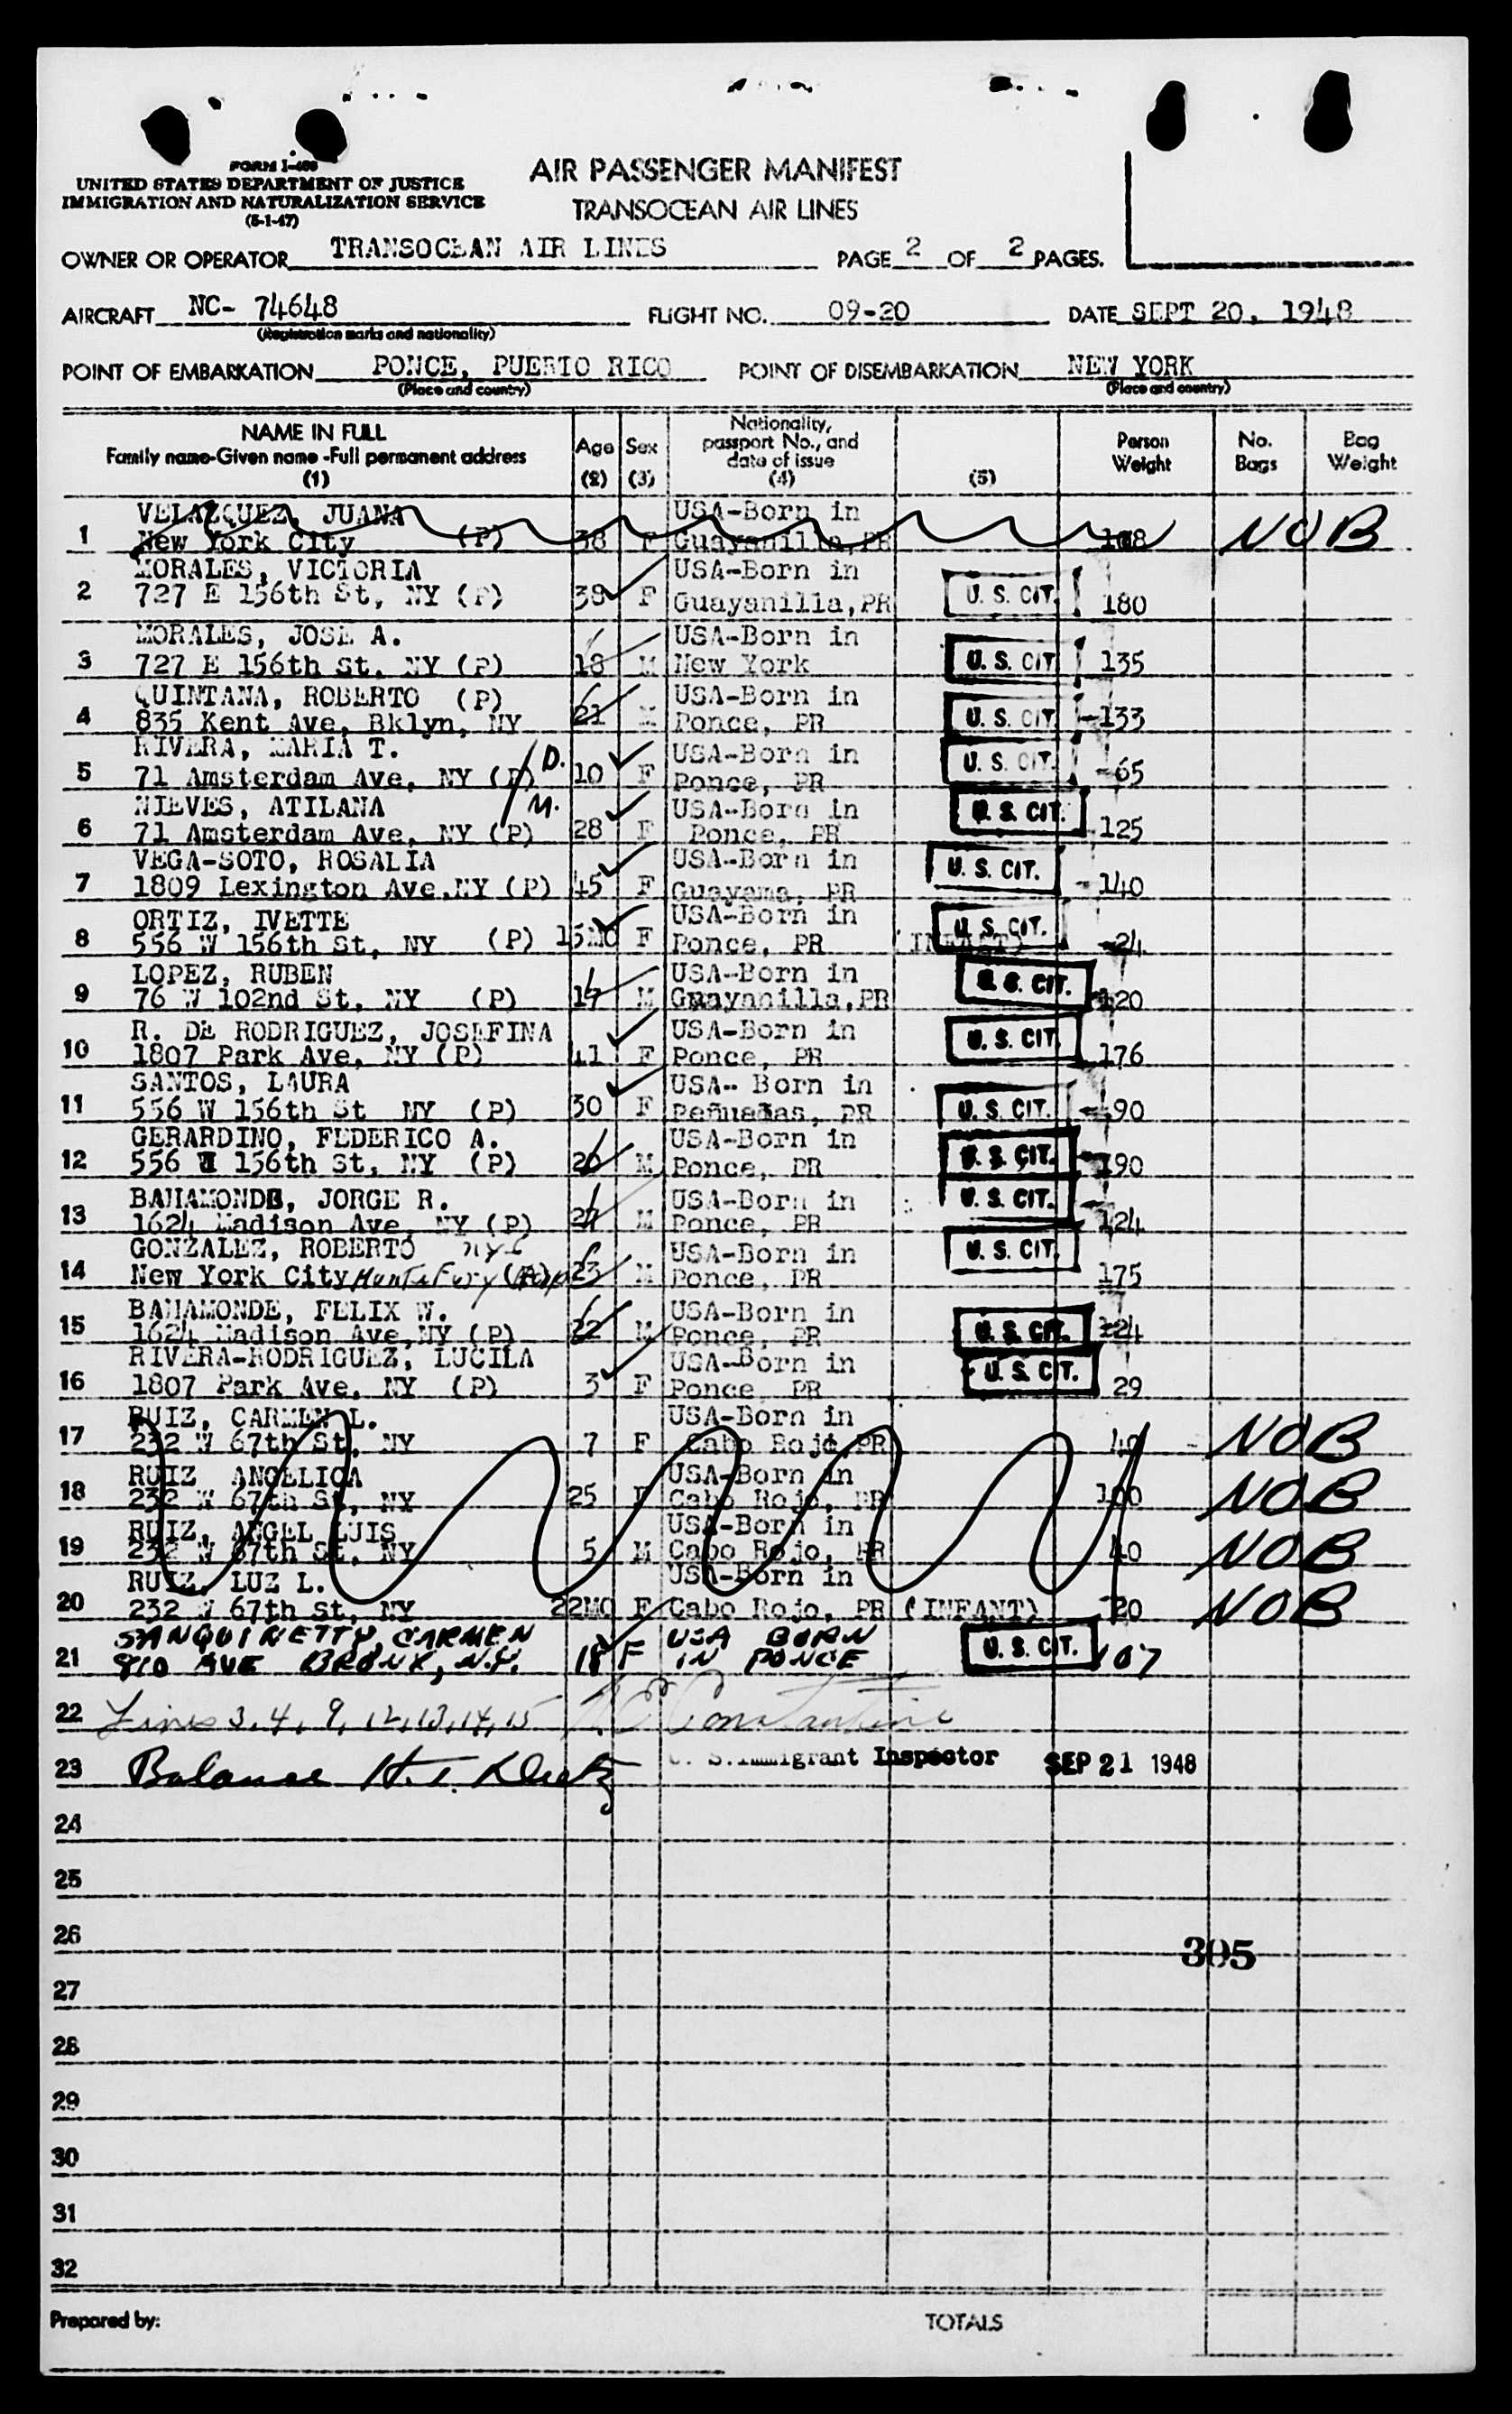 FORM I-466
UNITED STATES DEPARTMENT OF JUSTICE
IMMIGRATION AND NATURALIZATION SERVICE
(5-1-47)
AIR PASSENGER MANIFEST
TRANSOCEAN AIR LINES
OWNER OR OPERATOR TRANSOCEAN AIR LINES PAGE 2 OF 2 PAGES.
AIRCRAFT NC- 74648 FLIGHT NO. 09-20 DATE SEPT 20, 1948
(Registration marks and nationality)
POINT OF EMBARKATION PONCE, PUERTO RICO POINT OF DISEMBARKATION NEW YORK
(Place and country) (Place and country)
NAME IN FULL Age Sex Nationality, passport No., and date of issue Person Weight No. Bags Bag Weight
Family name-Given name -Full permanent address
(1) (2) (3) (4) (5)
VELAZQUEZ, JUANA USA-Born in
1 New York City (P) 38 F Guayanilla, PR NOB
MORALES, VICTORIA USA-Born in
2 727 E 156th St, NY (P) 38 F Guayanilla, PR U. S. CIT. 180
MORALES, JOSE A. USA-Born in
3 727 E 156th St, NY (P) 18 M New York U. S. CIT 135
QUINTANA, ROBERTO (P) USA-Born in
4 835 Kent Ave, Bklyn, NY 21 M Ponce, PR U. S. CIT 133
RIVERA, MARIA T. D. USA-Born in
5 71 Amsterdam Ave, NY (P) 10 F Ponce, PR U. S. CIT. 65
NIEVES, ATILANA M. USA-Born in
6 71 Amsterdam Ave, NY (P) 28 F Ponce, PR U. S. CIT. 125
VEGA-SOTO, ROSALIA USA-Born in
7 1809 Lexington Ave, NY (P) 45 F Guayama, PR U. S. CIT. 140
ORTIZ, IVETTE USA-Born in
8 556 W 156th St, NY (P) 15MO F Ponce, PR (INFANT) U. S. CIT. 24
LOPEZ, RUBEN USA-Born in
9 76 W 102nd St, NY (P) 17 M Guayanilla, PR U. S. CIT. 120
R. DE RODRIGUEZ, JOSEFINA USA-Born in
10 1807 Park Ave, NY (P) 41 F Ponce, PR U. S. CIT 176
SANTOS, LAURA USA- Born in
11 556 W 156th St NY (P) 30 F Peñuelas, PR U. S. CIT. 90
GERARDINO, FEDERICO A. USA-Born in
12 556 W 156th St, NY (P) 20 M Ponce, PR U. S. CIT. 190
BAHAMONDE, JORGE R. USA-Born in
13 1624 Madison Ave NY (P) M Ponce, PR U. S. CIT. 124
GONZALEZ, ROBERTO nyc USA-Born in
14 New York City (P) 23 M Ponce, PR U. S. CIT. 175
BAHAMONDE, FELIX W. USA-Born in
15 1624 Madison Ave, NY (P) 22 M Ponce, PR U. S. CIT. 124
RIVERA-RODRIGUEZ, LUCILA USA-Born in
16 1807 Park Ave, NY (P) 3 F Ponce, PR U. S. CIT. 29
RUIZ, CARMEN L. USA-Born in
17 232 W 67th St, NY 7 F Cabo Rojo, PR 40 NOB
RUIZ ANGELICA USA-Born in
18 232 W 67th St, NY 25 F Cabo Rojo, PR 100 NOB
RUIZ, ANGEL LUIS USA-Born in
19 232 W 67th St, NY 5 M Cabo Rojo, PR 40 NOB
RUIZ, LUZ L. USA-Born in
20 232 W 67th St, NY 22MO F Cabo Rojo, PR (INFANT) 20 NOB
SANQUIRETTY, CARMEN USA BORN
21 910 AVE BRONX, N.Y. 18 F IN PONCE U. S. CIT. 107
22 Lines 3, 4, 9, 12, 13, 14, 15 Constantine
23 Balance H. T. U. S. Immigrant Inspector SEP 21 1948
24
25
26
305
27
28
29
30
31
32
Prepared by: TOTALS